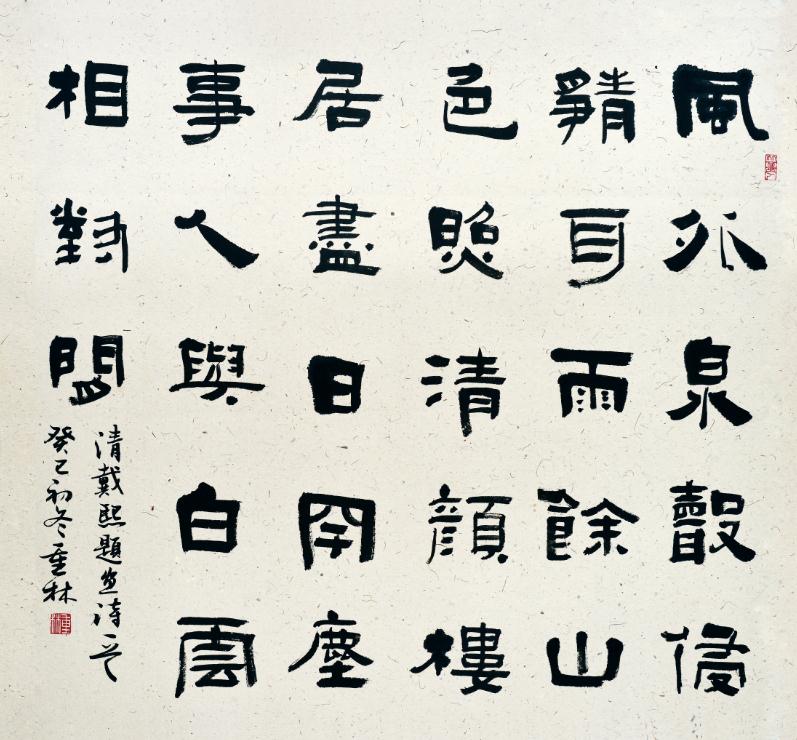 風外泉聲侵
靜耳雨餘山
色照清顏樓
居盡日罕塵
事人與白雲
相對閒
清戴熙題畫詩一首
癸巳初冬重林